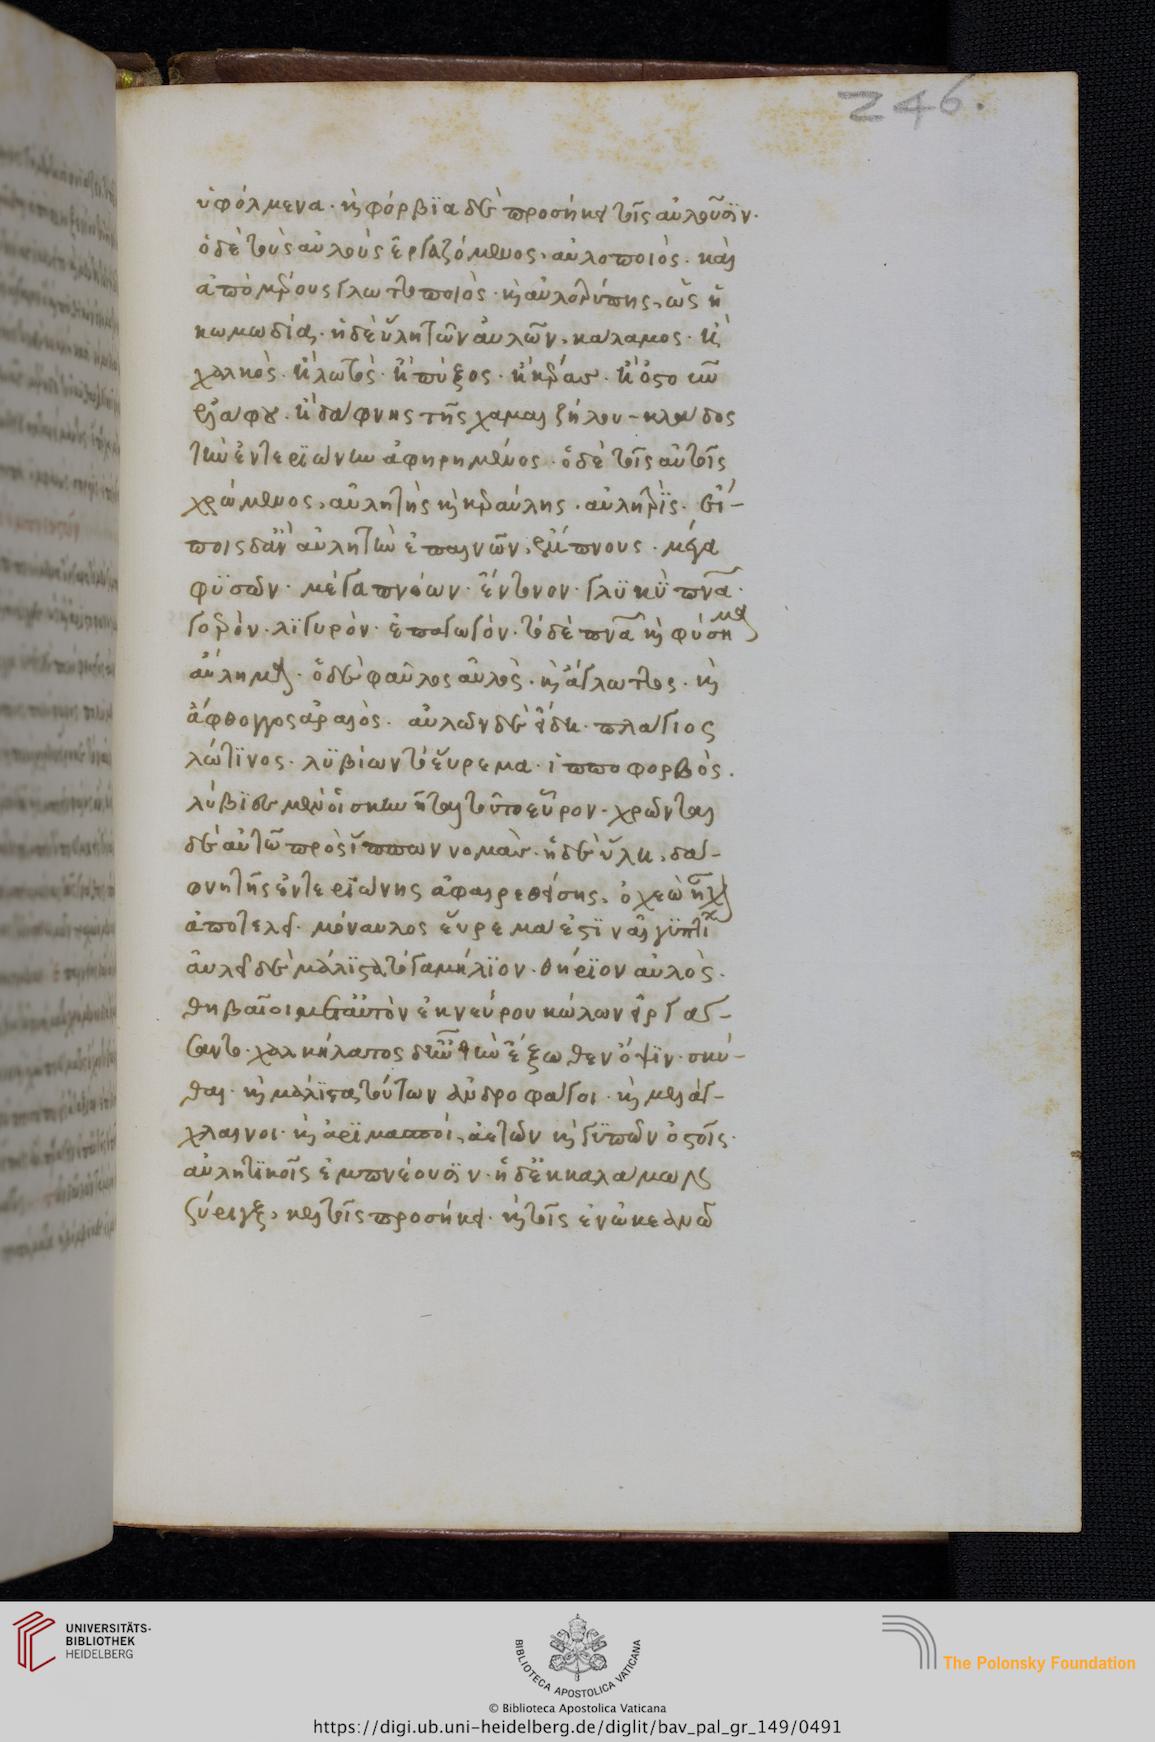 246.
ὑφόλμενα· καὶ φόρβϊα δὲ προσήκει τοῖς αὐλοῦσϊν·
ὁ δὲ τοὺς αὐλοὺς ἐργαζόμενος, αὐλοποιός· καὶ
ἀπὸ μέρους γλωττοποιὸς· καὶ αὐλοτρύπης, ὡς ἡ
κωμωδία· ἡ δὲ ὕλη τῶν αὐλῶν, κάλαμος· καὶ
χαλκὸς· καὶ λωτὸς· καὶ πύξος· καὶ κέρας· καὶ ὀστοῦν
ἐλάφου· καὶ δάφνης τῆς χαμαιζήλου κλάδος
τὴν ἐντεριώνην ἀφηρημένος· ὁ δὲ τοῖς αὐτοῖς
χρώμενος, αὐλητὴς καὶ κεραύλης· αὐλητρὶς· εἴ-
ποις δ' ἂν αὐλητὴν ἐπαινῶν, ἔμπνους· μέγα
φϋσῶν· μέγα πνέων· ἔντονον· γλϋκὺ πνεῦμα·
γοερόν· λϊγυρόν· ἐπαγωγόν· τὸ δὲ πνεῦμα καὶ φύσημα
αὔλημα· ὁ δὲ φαῦλος αὐλὸς· καὶ ἄγλωττος· καὶ
ἄφθογγος ἀραιὸς· αὐλῶν δὲ εἴδη· πλάγιος
λώτϊνος· λϋβίων τὸ εὕρεμα· ἱπποφορβὸς·
λύβϊες μὲν οἱ σκηνῆται τοῦτο εὗρον· χρῶνται
δὲ αὐτῶ πρὸς ἵππων νομὰς· ἡ δὲ ὕλη, δά-
φνη τῆς ἐντεριώνης ἀφαιρεθείσης,
ἀποτελεῖ· μόναυλος εὕρεμα ἐστϊν αἰγϋπτίων
αὐλεῖ δὲ μάλϊστα τὸ γαμήλϊον· θήρειον αὐλὸς·
θηβαῖοι μὲν αὐτὸν ἐκ νεύρου κώλων εἰργάσ-
σαντο· χαλκήλατος δ' ἦν τὴν ἔξωθεν ὄψϊν· σκύ-
θαι· καὶ μάλϊστα τούτων ἀνδροφάγοι· καὶ μελάγ-
χλαινοι· καὶ ἀρϊμασποί, ἀετῶν καὶ γϋπῶν ὀστοῖς·
αὐλητϊκοῖς ἐμπνέουσϊν· ἡ δὲ ἐκ καλάμων
σύριγξ, κελτοῖς προσήκει· καὶ τοῖς ἐν ὠκεανῶ
UNIVERSITÄTS-
BIBLIOTHEK
HEIDELBERG
BIBLIOTECA APOSTOLICA VATICANA
The Polonsky Foundation
© Biblioteca Apostolica Vaticana
https://digi.ub.uni-heidelberg.de/diglit/bav_pal_gr_149/0491